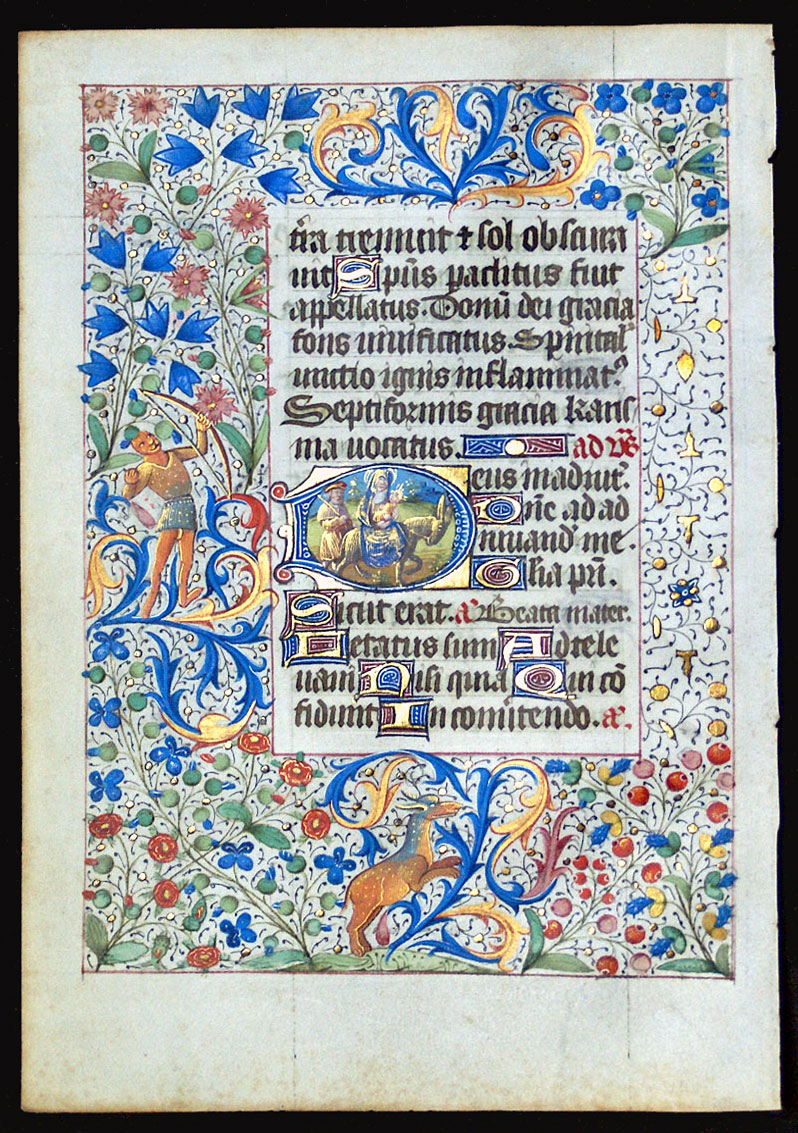 t̄ra tremuit ⁊ sol obscura
uit Sp̄us paclitus fuit
appellatus. Donū dei gracia
fons uiuificatus. Spirital'
unctio ignis inflammat⁹
Septiformis gracia karis
ma uocatus. ad vs̄
Deus in adiut'
Dn̄e ad ad
iuuand' me.
Gl̄ia pr̄i.
Sicut erat. a᷒ Beata mater.
Letatus sum Ad te le
uaui Nisi quia Qui cō
fidunt In conuertendo. a᷒